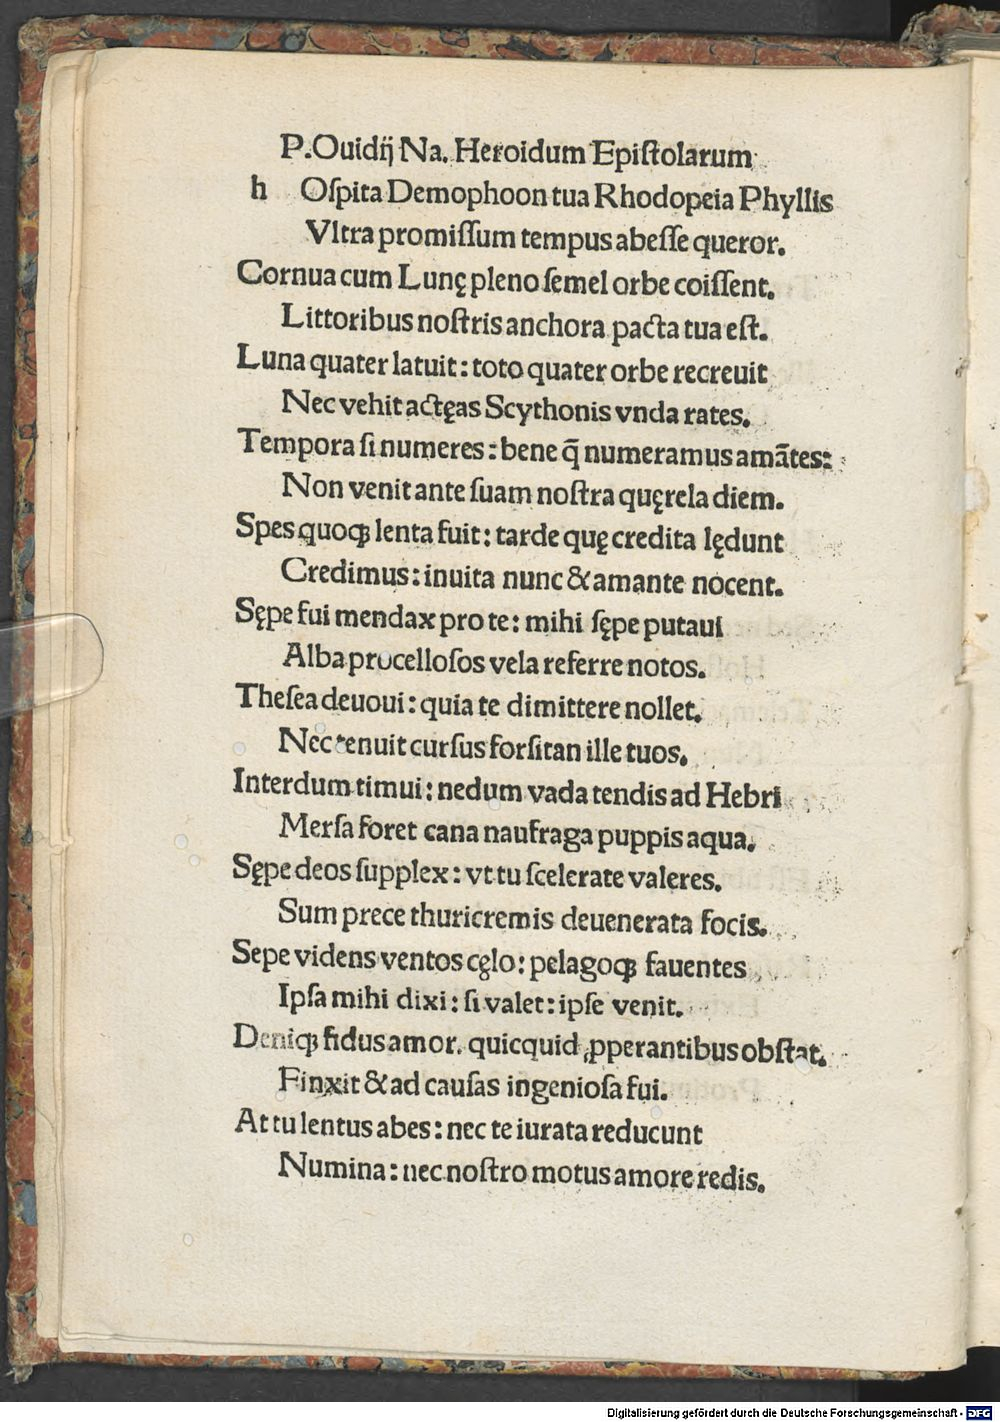 P.Ouidij Na. Heroidum Epiſtolarum
h Oſpita Demophoon tua Rhodopeia Phyllis
Vltra promiſſum tempus abeſſe queror.
Cornua cum Lunę pleno ſemel orbe coiſſent.
Littoribus noſtris anchora pacta tua eſt.
Luna quater latuit: toto quater orbe recreuit
Nec vehit actęas Scythonis vnda rates.
Tempora ſi numeres: bene q̃ numeramus amãtes:
Non venit ante ſuam noſtra quęrela diem.
Spes quoqꝫ lenta fuit: tarde quę credita lędunt
Credimus: inuita nunc & amante nocent.
Sępe fui mendax pro te: mihi ſępe putaui
Alba procelloſos vela referre notos.
Theſea deuoui: quia te dimittere nollet.
Nec tenuit curſus forſitan ille tuos.
Interdum timui: nedum vada tendis ad Hebri
Merſa foret cana naufraga puppis aqua.
Sępe deos ſupplex: vt tu ſcelerate valeres.
Sum prece thuricremis deuenerata focis.
Sepe videns ventos cęlo: pelagoqꝫ fauentes
Ipſa mihi dixi: ſi valet: ipſe venit.
Deniqꝫ fidus amor. quicquid ꝓperantibus obſtat.
Finxit & ad cauſas ingenioſa fui.
At tu lentus abes: nec te iurata reducunt
Numina: nec noſtro motus amore redis.
Digitalisierung gefördert durch die Deutsche Forschungsgemeinschaft - DFG